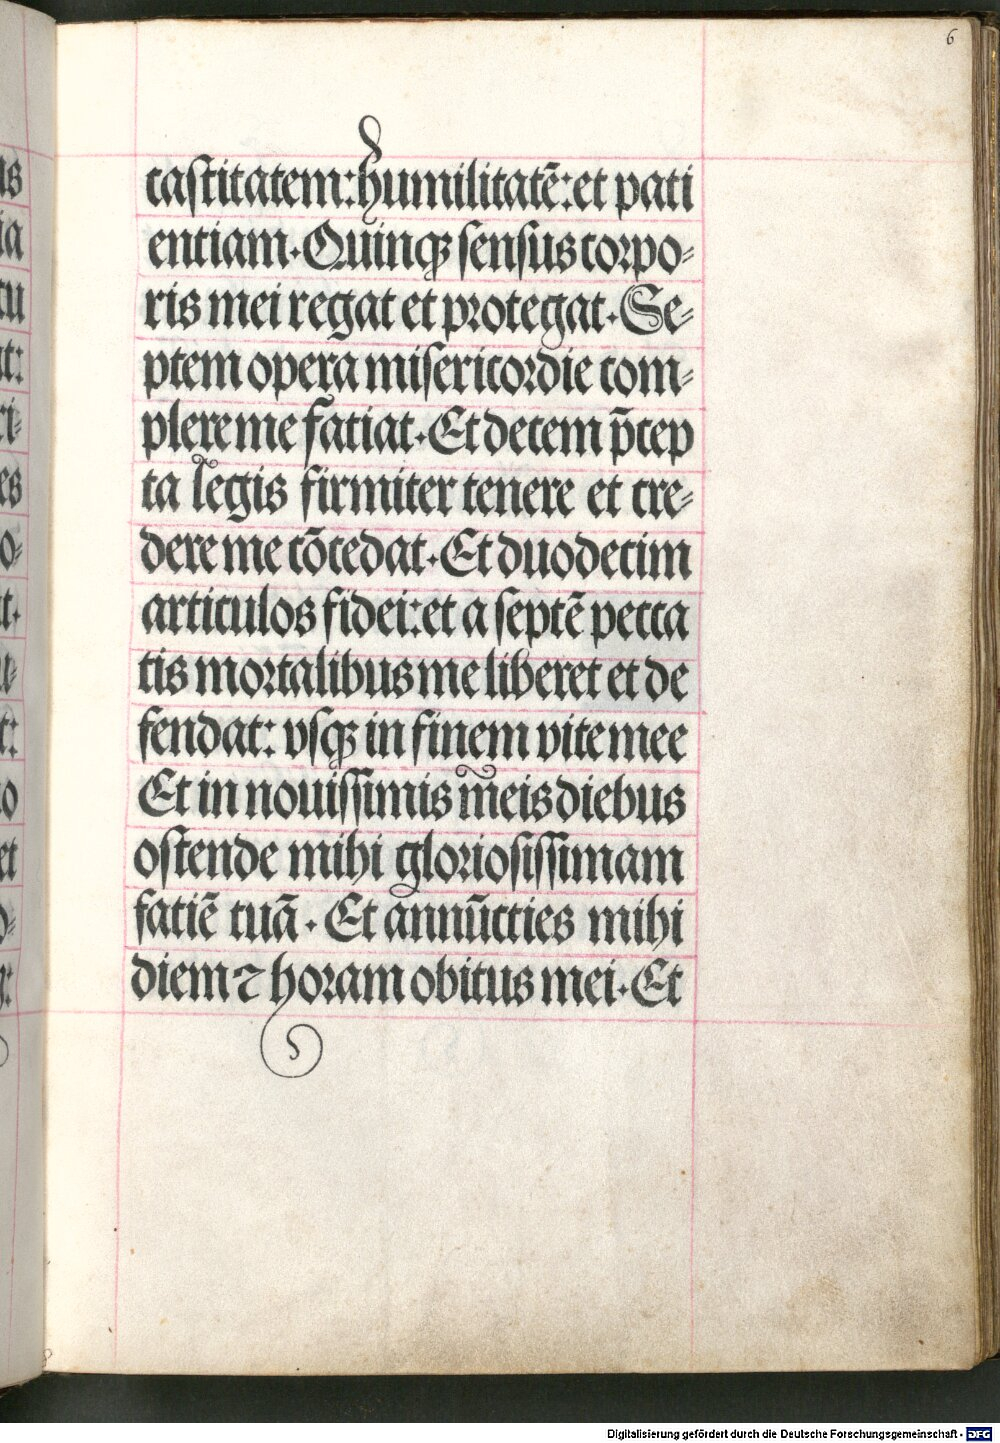 6
castitatem: humilitatē: et pati
entiam. Quinqꝫ sensus corpo-
ris mei regat et protegat. Se-
ptem opera misericordie com-
plere me faciat. Et decem p̄cep
ta legis firmiter tenere et cre-
dere me cōcedat. Et duodecim
articulos fidei: et a septē pecca
tis mortalibus me liberet et de
fendat: vsqꝫ in finem vite mee
Et in nouissimis meis diebus
ostende mihi gloriosissimam
faciē tuā. Et annūccies mihi
diem ⁊ horam obitus mei. Et
Digitalisierung gefördert durch die Deutsche Forschungsgemeinschaft - DFG